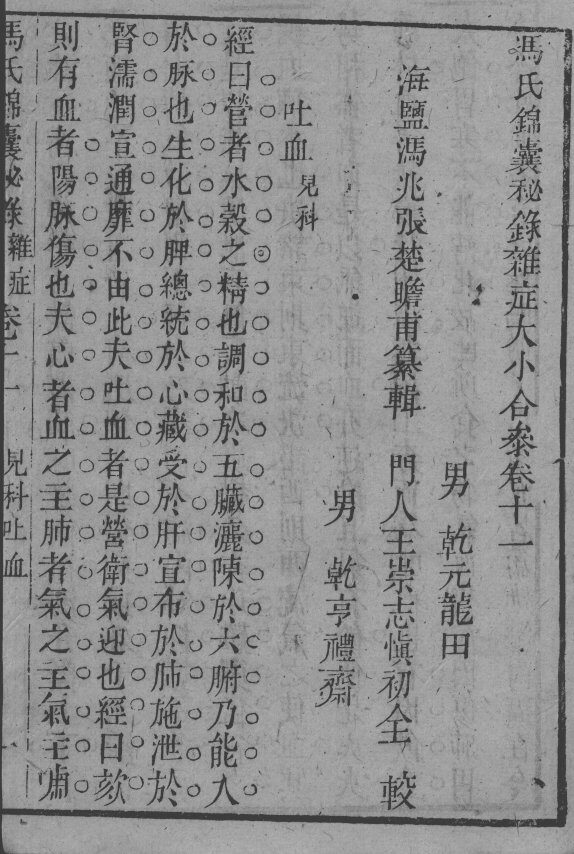 馮氏錦囊秘錄雜症大小合叅卷十一
男　乾元龍田
海鹽馮兆張楚瞻甫纂輯　門人王崇志慎初仝　較
男　乾亨禮齋
吐血 兒科
經曰營者水穀之精也調和於五臟灑陳於六腑乃能入
於脉也生化於脾總統於心藏受於肝宣布於肺施泄於
腎濡潤宣通靡不由此夫吐血者是營衛氣逆也經曰欬
則有血者陽脉傷也夫心者血之主肺者氣之主氣主噓
馮氏錦囊秘錄雜症卷十一　兒科吐血　一